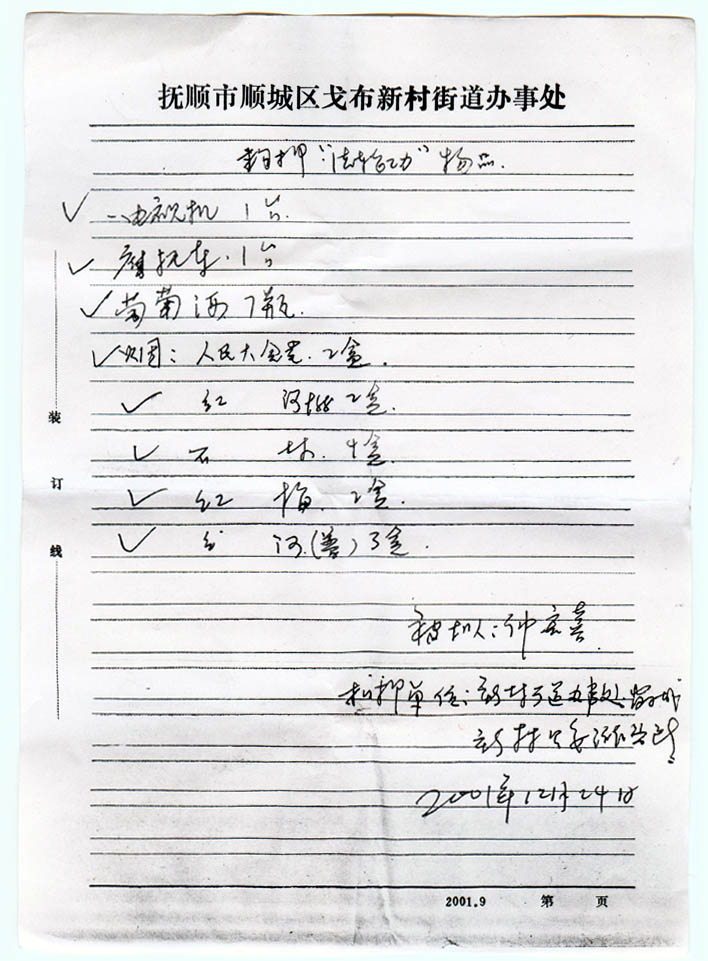 抚顺市顺城区戈布新村街道办事处
扣押“法轮功”物品.
一电视机 1台.
摩托车.1台
葡萄酒 7瓶.
烟: 人民大会堂.2盒.
红 河 2盒.
石 林. 4盒.
红 梅. 2盒.
红 河.( ) 3盒.
被扣人:
扣押单位: 新村街道办事处.
新村
2001年12月24日
装
订
线
2001.9 第 页